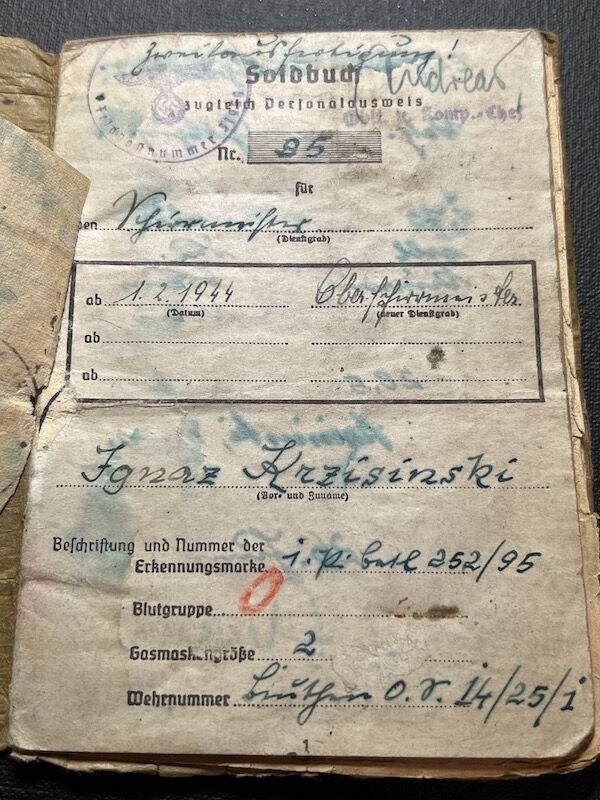 Zweitausfertigung!
Soldbuch
zugleich Personalausweis
u. Komp.-Chef
Nr. 95
für
den Schirrmeister
(Dienstgrad)
ab 1.2.1944 Oberschirrmeister
(Datum) (neuer Dienstgrad)
ab
ab
Ignaz Krzisinski
(Vor- und Zuname)
Beschriftung und Nummer der
Erkennungsmarke 252/95
Blutgruppe 0
Gasmaskengröße 2
Wehrnummer Beuthen O.S. 14/25/1
1